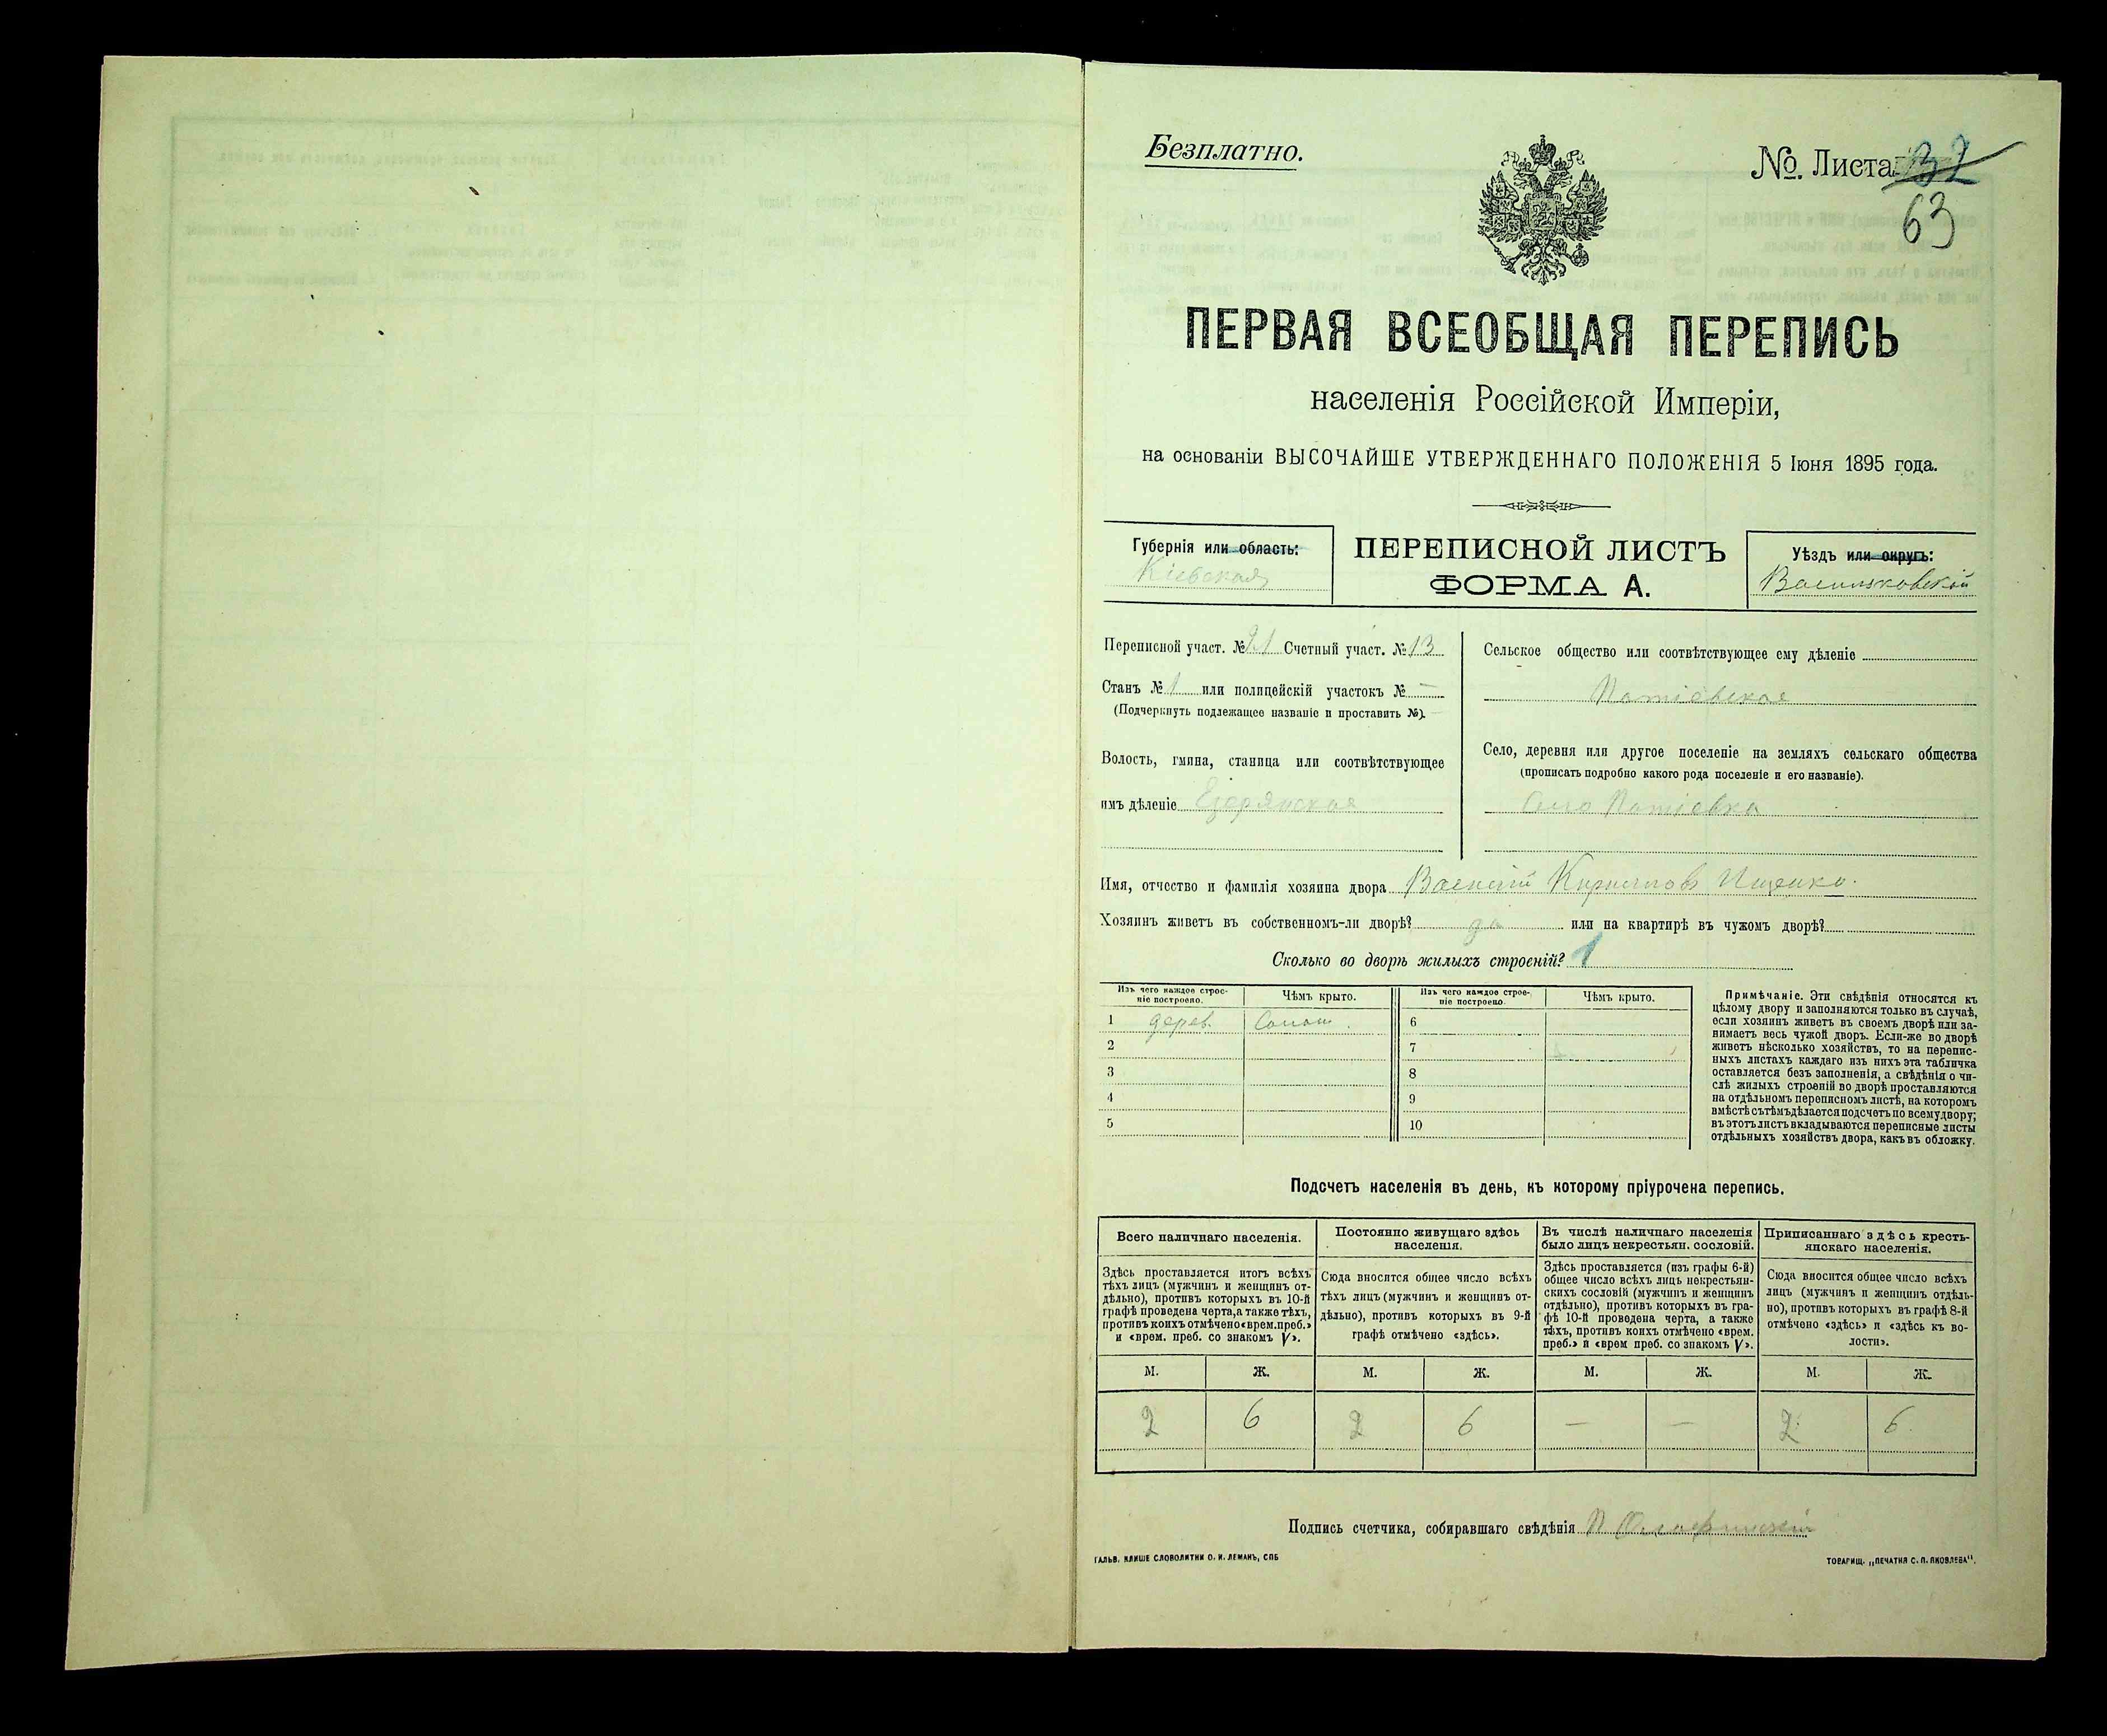 Безплатно.
№. Листа 32
63
ПЕРВАЯ ВСЕОБЩАЯ ПЕРЕПИСЬ
населенія Россійской Имперіи,
на основаніи ВЫСОЧАЙШЕ УТВЕРЖДЕННАГО ПОЛОЖЕНІЯ 5 Іюня 1895 года.
Губернія или область:
Кіевская
ПЕРЕПИСНОЙ ЛИСТЪ
ФОРМА А.
Уѣздъ или округъ:
Васильковскій
Переписной участ. № 21 Счетный участ. № 13
Станъ № 1 или полицейскій участокъ № —
(Подчеркнуть подлежащее названіе и проставить №).
Волость, гмина, станица или соотвѣтствующее
имъ дѣленіе Езерянская
Сельское общество или соотвѣтствующее ему дѣленіе
Потіевское
Село, деревня или другое поселеніе на земляхъ сельскаго общества
(прописать подробно какого рода поселеніе и его названіе).
Село Потіевка
Имя, отчество и фамилія хозяина двора Василій Кирилловъ Ищенко.
Хозяинъ живетъ въ собственномъ-ли дворѣ? да или на квартирѣ въ чужомъ дворѣ?
Сколько во дворѣ жилыхъ строеній? 1
Изъ чего каждое строе-
ніе построено.
Чѣмъ крыто.
Изъ чего каждое строе-
ніе построено.
Чѣмъ крыто.
1 дерев. Солом. 6
2 7
3 8
4 9
5 10
Примѣчаніе. Эти свѣдѣнія относятся къ
цѣлому двору и заполняются только въ случаѣ,
если хозяинъ живетъ въ своемъ дворѣ или за-
нимаетъ весь чужой дворъ. Если-же во дворѣ
живетъ нѣсколько хозяйствъ, то на перепис-
ныхъ листахъ каждаго изъ нихъ эта табличка
оставляется безъ заполненія, а свѣдѣнія о чи-
слѣ жилыхъ строеній во дворѣ проставляются
на отдѣльномъ переписномъ листѣ, на которомъ
вмѣстѣ съ тѣмъ дѣлается подсчетъ по всему двору;
въ этотъ листъ вкладываются переписные листы
отдѣльныхъ хозяйствъ двора, какъ въ обложку.
Подсчетъ населенія въ день, къ которому пріурочена перепись.
Всего наличнаго населенія.
Здѣсь проставляется итогъ всѣхъ
тѣхъ лицъ (мужчинъ и женщинъ от-
дѣльно), противъ которыхъ въ 10-й
графѣ проведена черта, а также тѣхъ,
противъ коихъ отмѣчено «врем. преб.»
и «врем. преб. со знакомъ V».
Постоянно живущаго здѣсь
населенія.
Сюда вносится общее число всѣхъ
тѣхъ лицъ (мужчинъ и женщинъ от-
дѣльно), противъ которыхъ въ 9-й
графѣ отмѣчено «здѣсь».
Въ числѣ наличнаго населенія
было лицъ некрестьян. сословій.
Здѣсь проставляется (изъ графы 6-й)
общее число всѣхъ лицъ некрестьян-
скихъ сословій (мужчинъ и женщинъ
отдѣльно), противъ которыхъ въ гра-
фѣ 10-й проведена черта, а также
тѣхъ, противъ коихъ отмѣчено «врем.
преб.» и «врем преб. со знакомъ V».
Приписаннаго здѣсь кресть-
янскаго населенія.
Сюда вносится общее число всѣхъ
лицъ (мужчинъ и женщинъ отдѣль-
но), противъ которыхъ въ графѣ 8-й
отмѣчено «здѣсь» и «здѣсь къ во-
лости».
М. Ж. М. Ж. М. Ж. М. Ж.
2 6 2 6 — — 2 6
Подпись счетчика, собиравшаго свѣдѣнія П
ГАЛЬВ. КЛИШЕ СЛОВОЛИТНИ О. И. ЛЕМАНЪ, СПБ
ТОВАРИЩ. „ПЕЧАТНЯ С. П. ЯКОВЛЕВА“.